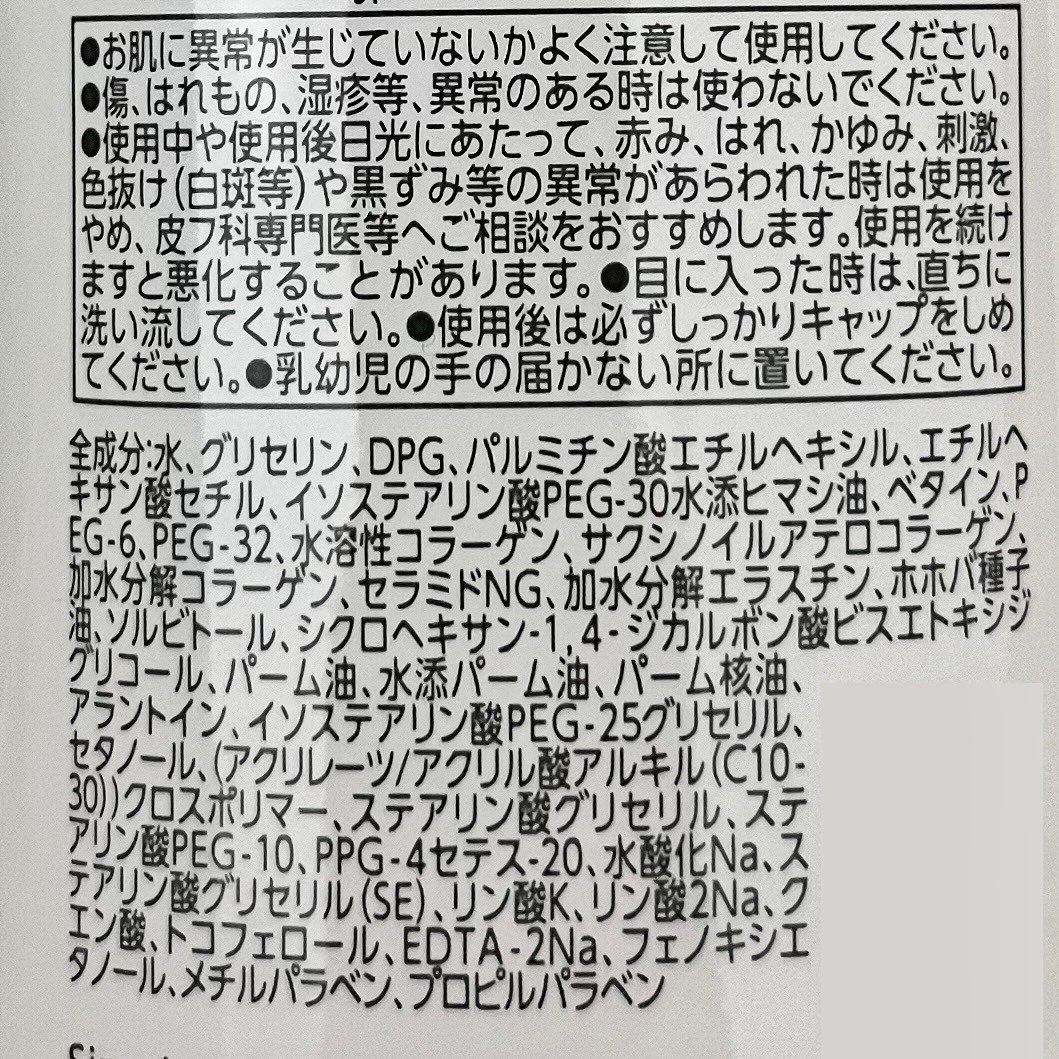 ●お肌に異常が生じていないかよく注意して使用してください。
●傷、はれもの、湿疹等、異常のある時は使わないでください。
●使用中や使用後日光にあたって、赤み、はれ、かゆみ、刺激、
色抜け(白斑等)や黒ずみ等の異常があらわれた時は使用を
やめ、皮フ科専門医等へご相談をおすすめします。使用を続け
ますと悪化することがあります。●目に入った時は、直ちに
洗い流してください。●使用後は必ずしっかりキャップをしめ
てください。●乳幼児の手の届かない所に置いてください。
全成分:水、グリセリン、DPG、パルミチン酸エチルヘキシル、エチルヘ
キサン酸セチル、イソステアリン酸PEG-30水添ヒマシ油、ベタイン、P
EG-6、PEG-32、水溶性コラーゲン、サクシノイルアテロコラーゲン、
加水分解コラーゲン、セラミドNG、加水分解エラスチン、ホホバ種子
油、ソルビトール、シクロヘキサン-1,4-ジカルボン酸ビスエトキシジ
グリコール、パーム油、水添パーム油、パーム核油、
アラントイン、イソステアリン酸PEG-25グリセリル、
セタノール、(アクリレーツ/アクリル酸アルキル(C10-
30))クロスポリマー、ステアリン酸グリセリル、ステ
アリン酸PEG-10、PPG-4セテス-20、水酸化Na、ス
テアリン酸グリセリル(SE)、リン酸K、リン酸2Na、ク
エン酸、トコフェロール、EDTA-2Na、フェノキシエ
タノール、メチルパラベン、プロピルパラベン